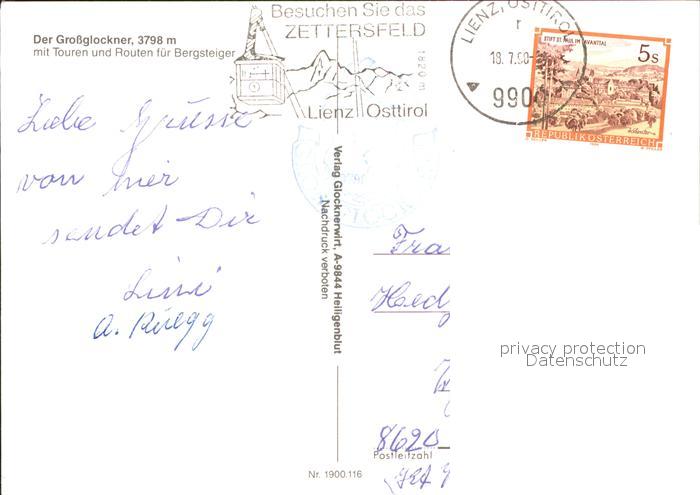 Der Großglockner, 3798 m
mit Touren und Routen für Bergsteiger
Besuchen Sie das
ZETTERSFELD
1820 m
Lienz Osttirol
LIENZ, OSTTIROL
r
18.7.90
9900
STIFT ST. PAUL IM LAVANTTAL
5s
REPUBLIK ÖSTERREICH
Liebe Grüsse
von hier
sendet Dir
Lini
A. Rüegg
Verlag Glocknerwirt, A-9844 Heiligenblut
Nachdruck verboten
Fra
Hed
8620
Postleitzahl
Nr. 1900.116
privacy protection
Datenschutz